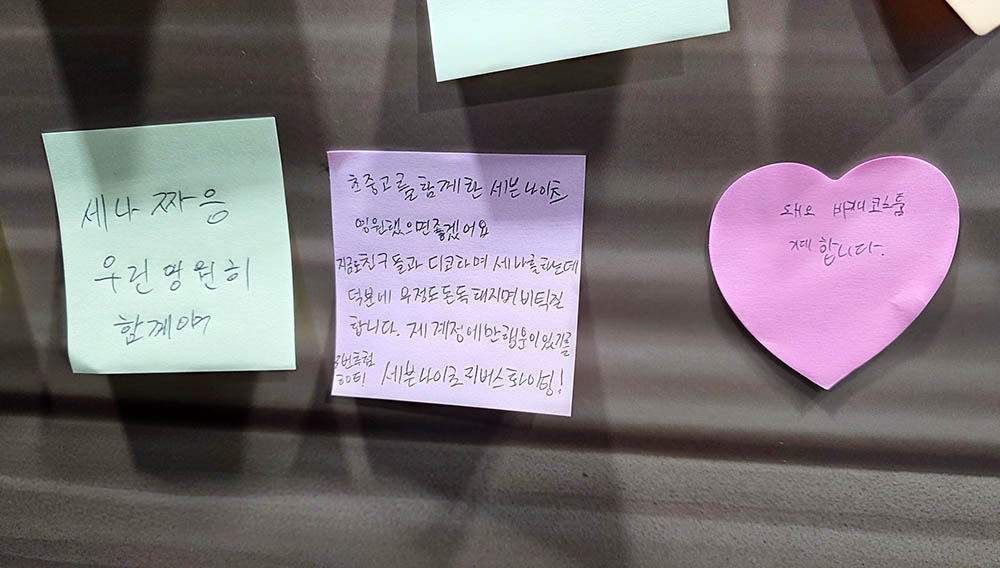 세나 짜응
우린 영원히
함께야
초중고를 함께한 세븐나이츠
영원했으면좋겠어요
지금도친구들과 디코하며 세나를하는데
덕분에 우정도돈독해지며비틱질
합니다. 제계정에만행운이있기를
세븐나이츠리버스화이팅!
돼요
합니다.